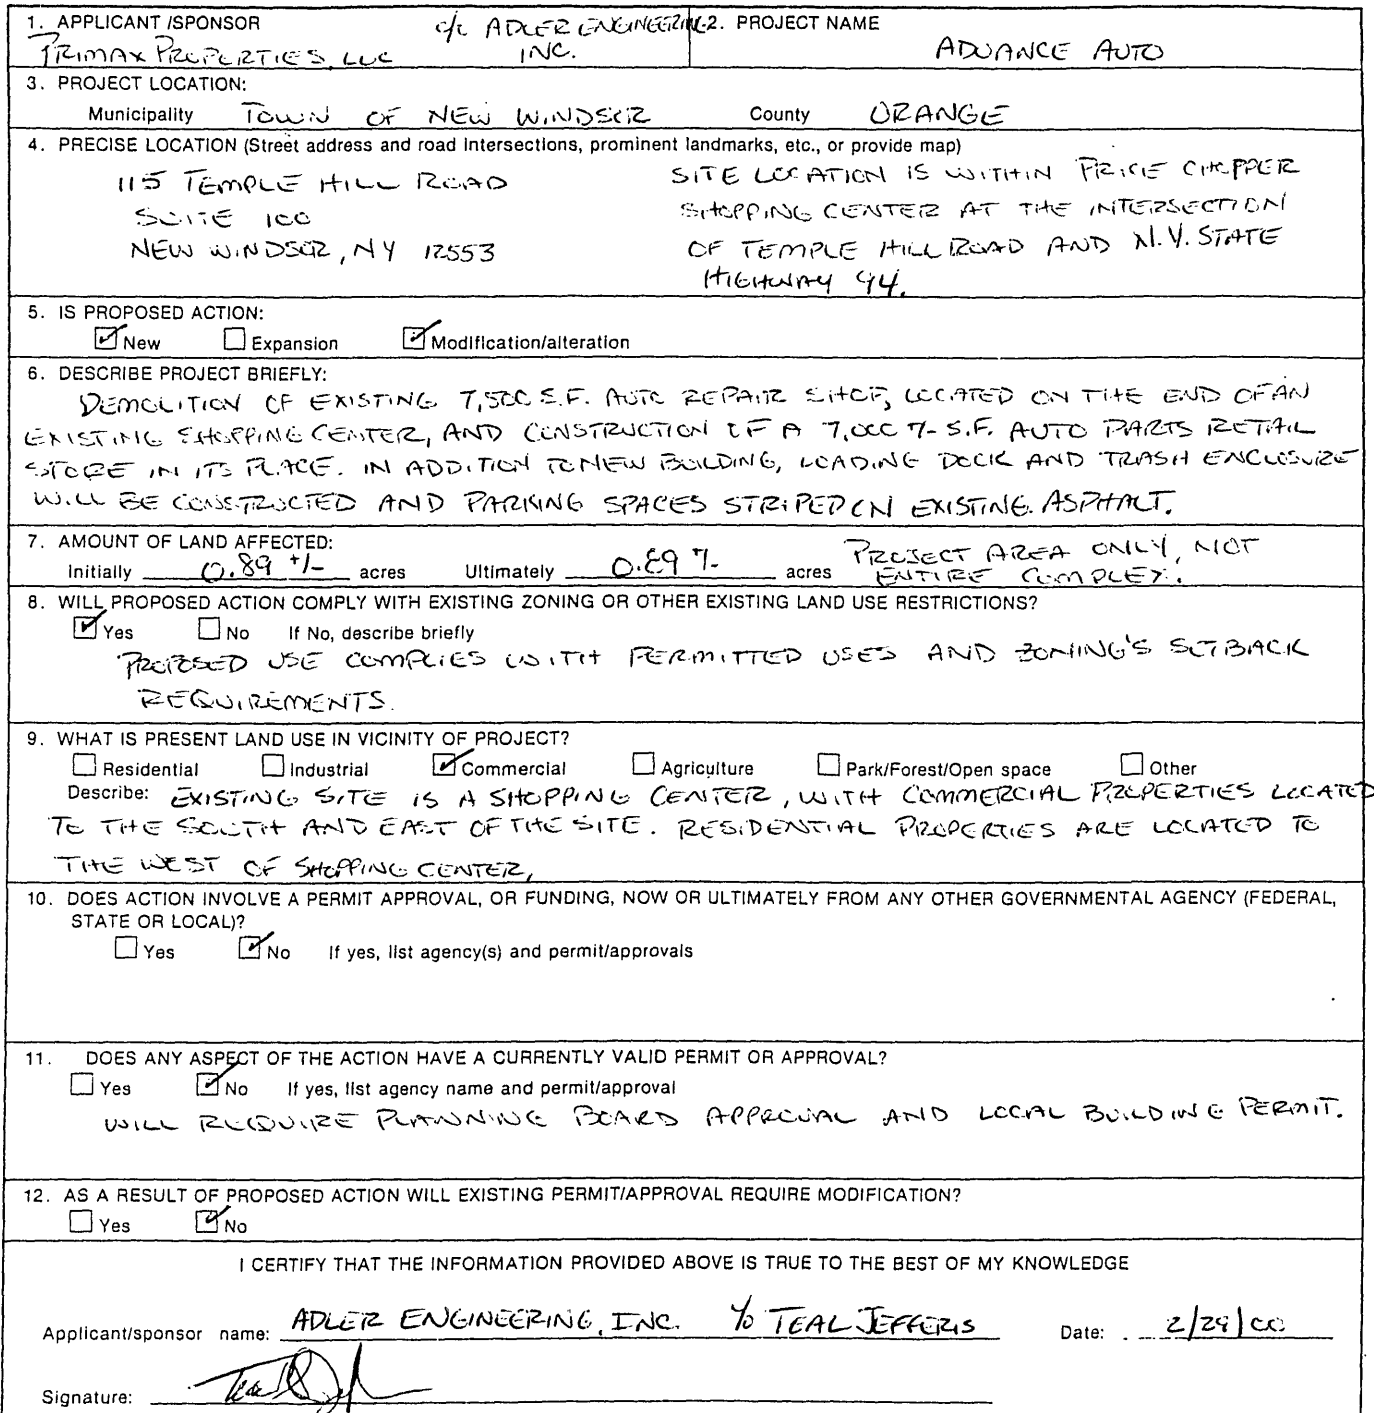 1. APPLICANT /SPONSOR c/o ADLER ENGINEERING 2. PROJECT NAME
PRIMAX PROPERTIES, LLC INC. ADVANCE AUTO
3. PROJECT LOCATION:
Municipality TOWN OF NEW WINDSOR County ORANGE
4. PRECISE LOCATION (Street address and road intersections, prominent landmarks, etc., or provide map)
115 TEMPLE HILL ROAD
SUITE 100
NEW WINDSOR, NY 12553
SITE LOCATION IS WITHIN PRICE CHOPPER
SHOPPING CENTER AT THE INTERSECTION
OF TEMPLE HILL ROAD AND N.Y. STATE
HIGHWAY 94.
5. IS PROPOSED ACTION:
New Expansion Modification/alteration
6. DESCRIBE PROJECT BRIEFLY:
DEMOLITION OF EXISTING 7,500 S.F. AUTO REPAIR SHOP, LOCATED ON THE END OF AN
EXISTING SHOPPING CENTER, AND CONSTRUCTION OF A 7,000 +/- S.F. AUTO PARTS RETAIL
STORE IN ITS PLACE. IN ADDITION TO NEW BUILDING, LOADING DOCK AND TRASH ENCLOSURE
WILL BE CONSTRUCTED AND PARKING SPACES STRIPED ON EXISTING ASPHALT.
7. AMOUNT OF LAND AFFECTED:
Initially 0.89 +/- acres Ultimately 0.89 +/- acres PROJECT AREA ONLY, NOT
ENTIRE COMPLEX.
8. WILL PROPOSED ACTION COMPLY WITH EXISTING ZONING OR OTHER EXISTING LAND USE RESTRICTIONS?
Yes No If No, describe briefly
PROPOSED USE COMPLIES WITH PERMITTED USES AND ZONING'S SETBACK
REQUIREMENTS.
9. WHAT IS PRESENT LAND USE IN VICINITY OF PROJECT?
Residential Industrial Commercial Agriculture Park/Forest/Open space Other
Describe: EXISTING SITE IS A SHOPPING CENTER, WITH COMMERCIAL PROPERTIES LOCATED
TO THE SOUTH AND EAST OF THE SITE. RESIDENTIAL PROPERTIES ARE LOCATED TO
THE WEST OF SHOPPING CENTER,
10. DOES ACTION INVOLVE A PERMIT APPROVAL, OR FUNDING, NOW OR ULTIMATELY FROM ANY OTHER GOVERNMENTAL AGENCY (FEDERAL,
STATE OR LOCAL)?
Yes No If yes, list agency(s) and permit/approvals
11. DOES ANY ASPECT OF THE ACTION HAVE A CURRENTLY VALID PERMIT OR APPROVAL?
Yes No If yes, list agency name and permit/approval
WILL REQUIRE PLANNING BOARD APPROVAL AND LOCAL BUILDING PERMIT.
12. AS A RESULT OF PROPOSED ACTION WILL EXISTING PERMIT/APPROVAL REQUIRE MODIFICATION?
Yes No
I CERTIFY THAT THE INFORMATION PROVIDED ABOVE IS TRUE TO THE BEST OF MY KNOWLEDGE
Applicant/sponsor name: ADLER ENGINEERING, INC. c/o TEAL JEFFERIS Date: 2/29/00
Signature: